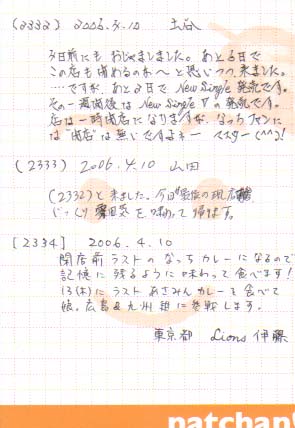 (2332) 2006.4.10 土谷
3日前にも おじゃましました。あと6日で
この店も閉めるのネ〜と思いつつ、来ました。
……ですが、あと2日で New Single 発売です。
その一週間後は New Single Vの発売です。
店は一時閉店になりますが、なっちファンに
は"閉店"は無いですよネー マスター(^^)!
(2333) 2006.4.10 山田
(2332)と来ました。今日は最後の現店舗
じっくり 味わって帰ります。
[2334] 2006.4.10
閉店前ラストのなっちカレーになるので
記憶に残るように味わって食べます!
13(木)にラストあさみんカレーを食べて
娘。広島&九州組に参戦します。
東京都 Lions 伊藤
patchan